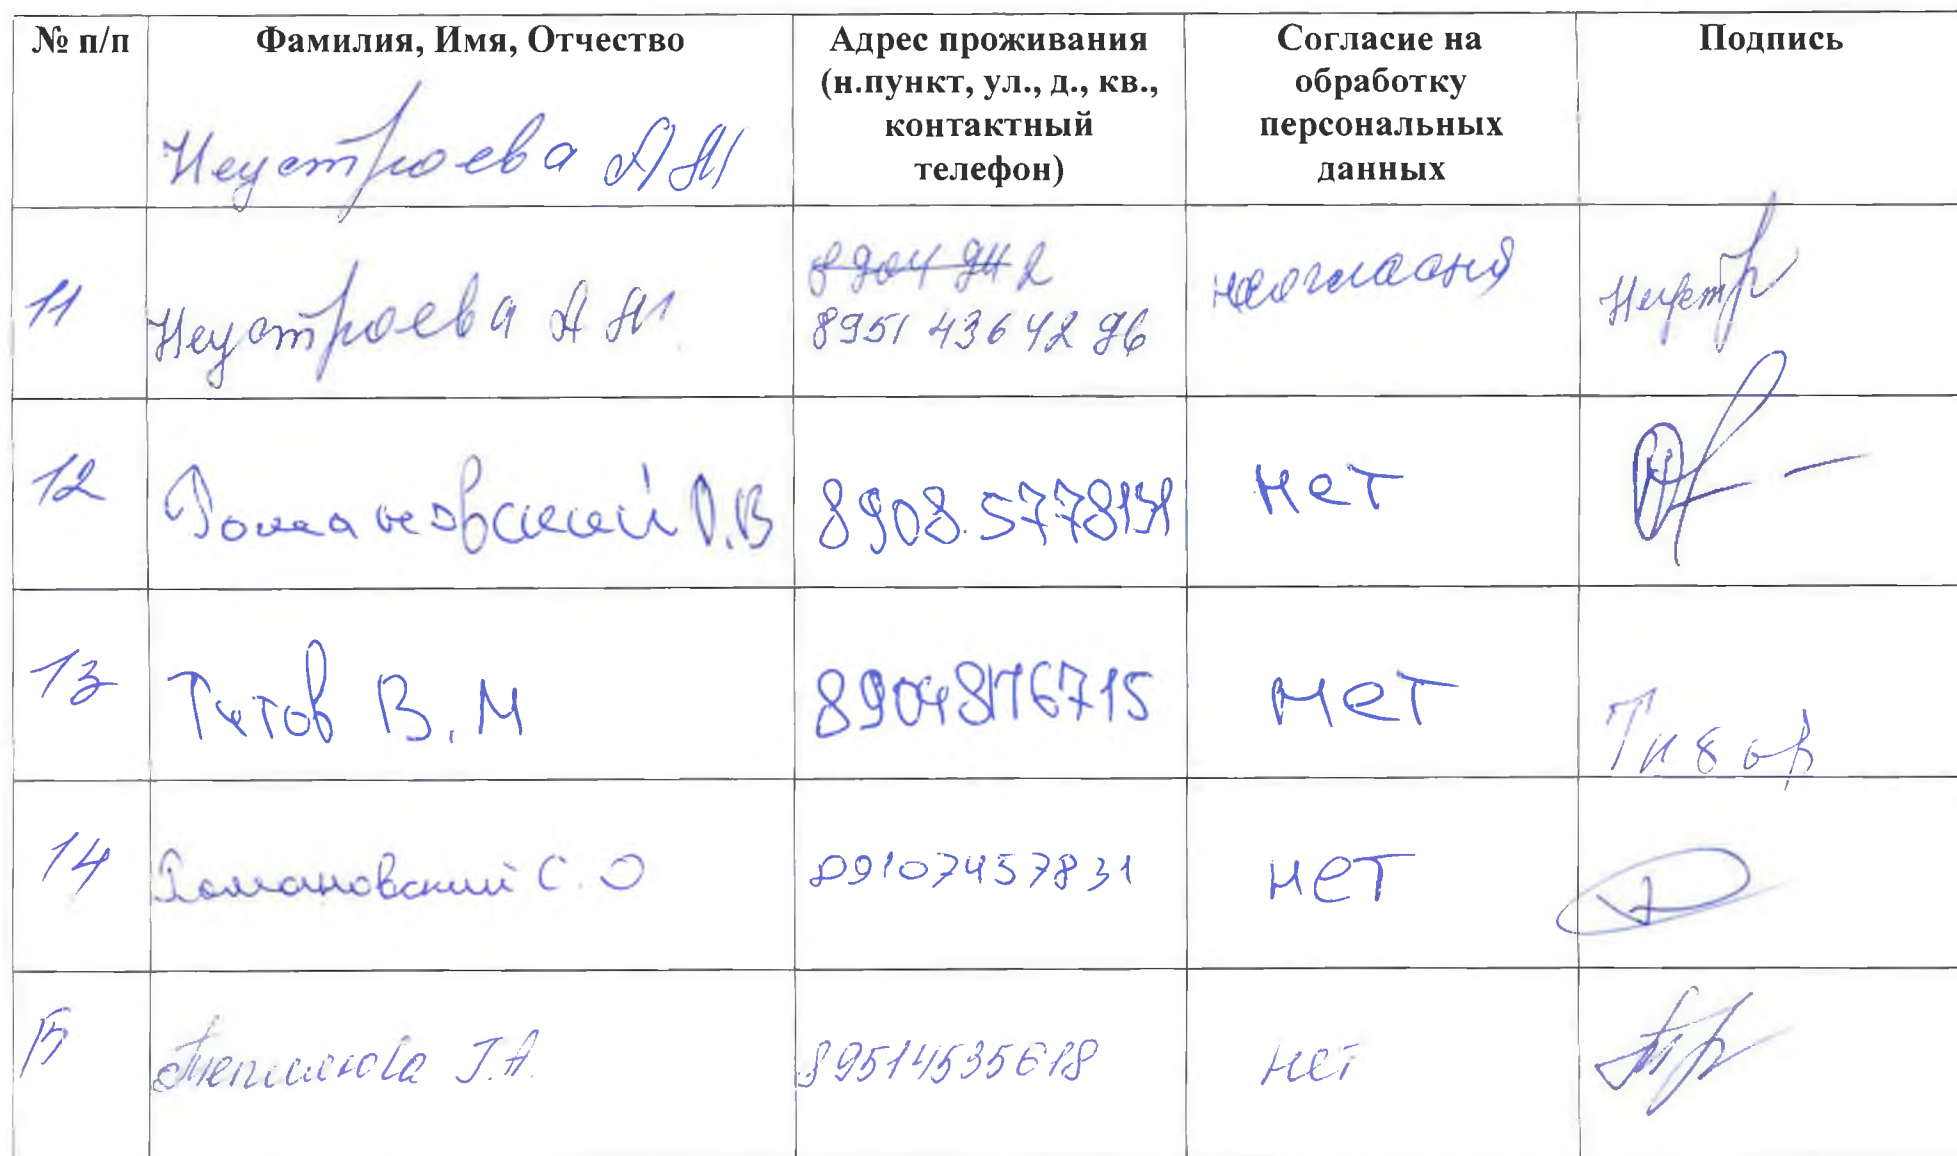 № п/п Фамилия, Имя, Отчество Адрес проживания (н.пункт, ул., д., кв., контактный телефон) Согласие на обработку персональных данных Подпись
Неустроева А
11 Неустроева А 8951 436 42 96
12 Романовский О.В 8908.5778131 нет
13 Титов В.М 89048176715 нет Титов
14 Романовский С.О 89107457831 нет
15 Т.А. 89514535618 нет